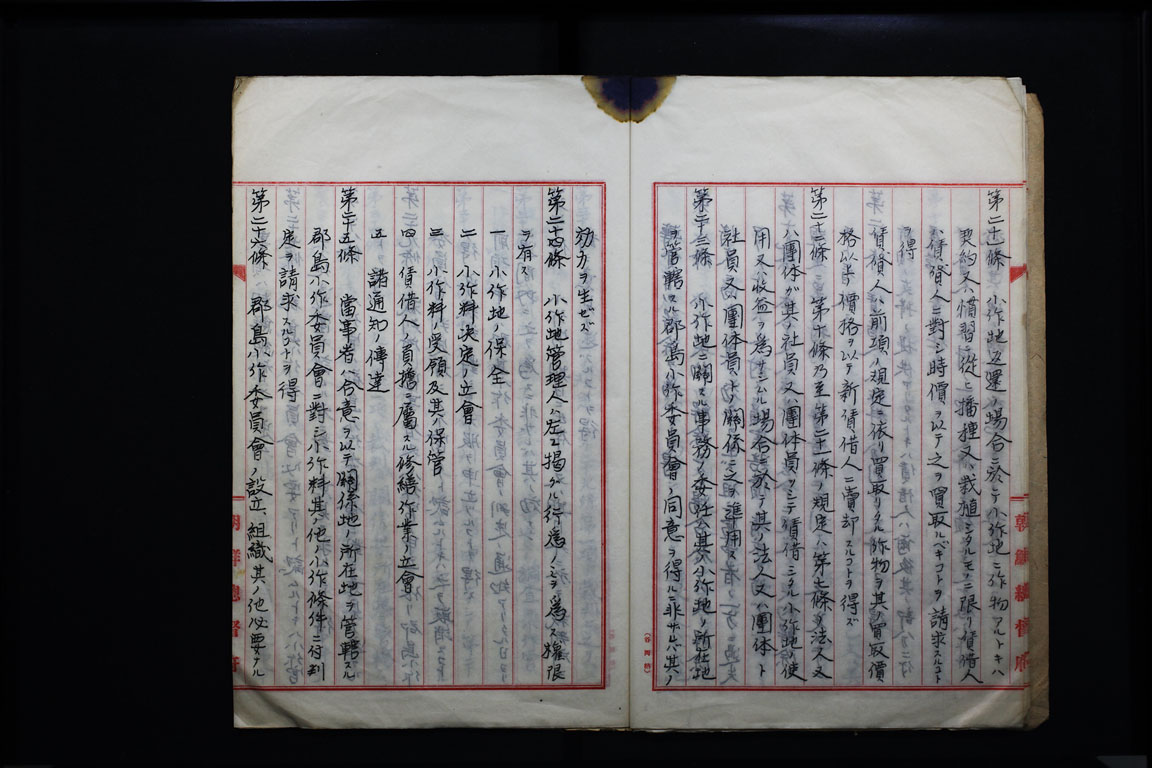 第二十一條　小作地返還ノ場合ニ於テ小作地ニ作物アルトキハ
契約又ハ慣習ニ從ヒ播種又ハ栽植シタルモノニ限リ賃借人
ハ賃貸人ニ對シ時價ヲ以テ之ヲ買取ルベキコトヲ請求スルコト
ヲ得
賃貸人ハ前項ノ規定ニ依リ買取リタル作物ヲ其ノ買取價
格以上ノ價格ヲ以テ新賃借人ニ賣却スルコトヲ得ズ
第二十二條　第十條乃至第二十一條ノ規定ハ第七條ノ法人又
ハ團体ガ其ノ社員又ハ團体員ヲシテ賃借シタル小作地ヲ使
用又ハ收益ヲ爲サシムル場合ニ於テ其ノ法人又ハ團体ト
社員又ハ團體員トノ關係ニ之ヲ準用ス
第二十三條　小作地ニ關スル事務ノ委任ハ其ノ小作地ノ所在地
ヲ管轄スル郡島小作委員會ノ同意ヲ得ルニ非ザレバ其ノ
朝鮮總督府
效力ヲ生ゼズ
第二十四條　小作地管理人ハ左ニ揭グル行爲ノミヲ爲ス權限
ヲ有ス
一　小作地ノ保全
二　小作料決定ノ立會
三　小作料ノ受領及其ノ保管
四　賃借人ノ負擔ニ屬スル修繕作業ノ立會
五　諸通知ノ傳達
第二十五條　當事者ハ合意ヲ以テ關係地ノ所在地ヲ管轄スル
郡島小作委員會ニ對シ小作料其ノ他ノ小作條件ニ付判
定ヲ請求スルコトヲ得
第二十六條　郡島小作委員會ノ設立、組織其ノ他必要ナル
朝鮮總督府